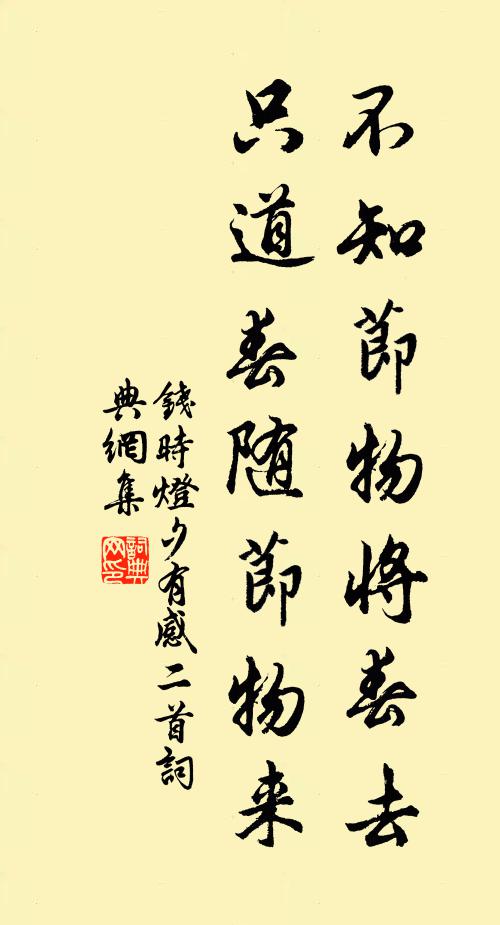 不知節物將春去
只道春随節物来
錢時燈夕有感二首詞
典網集
詞典网印